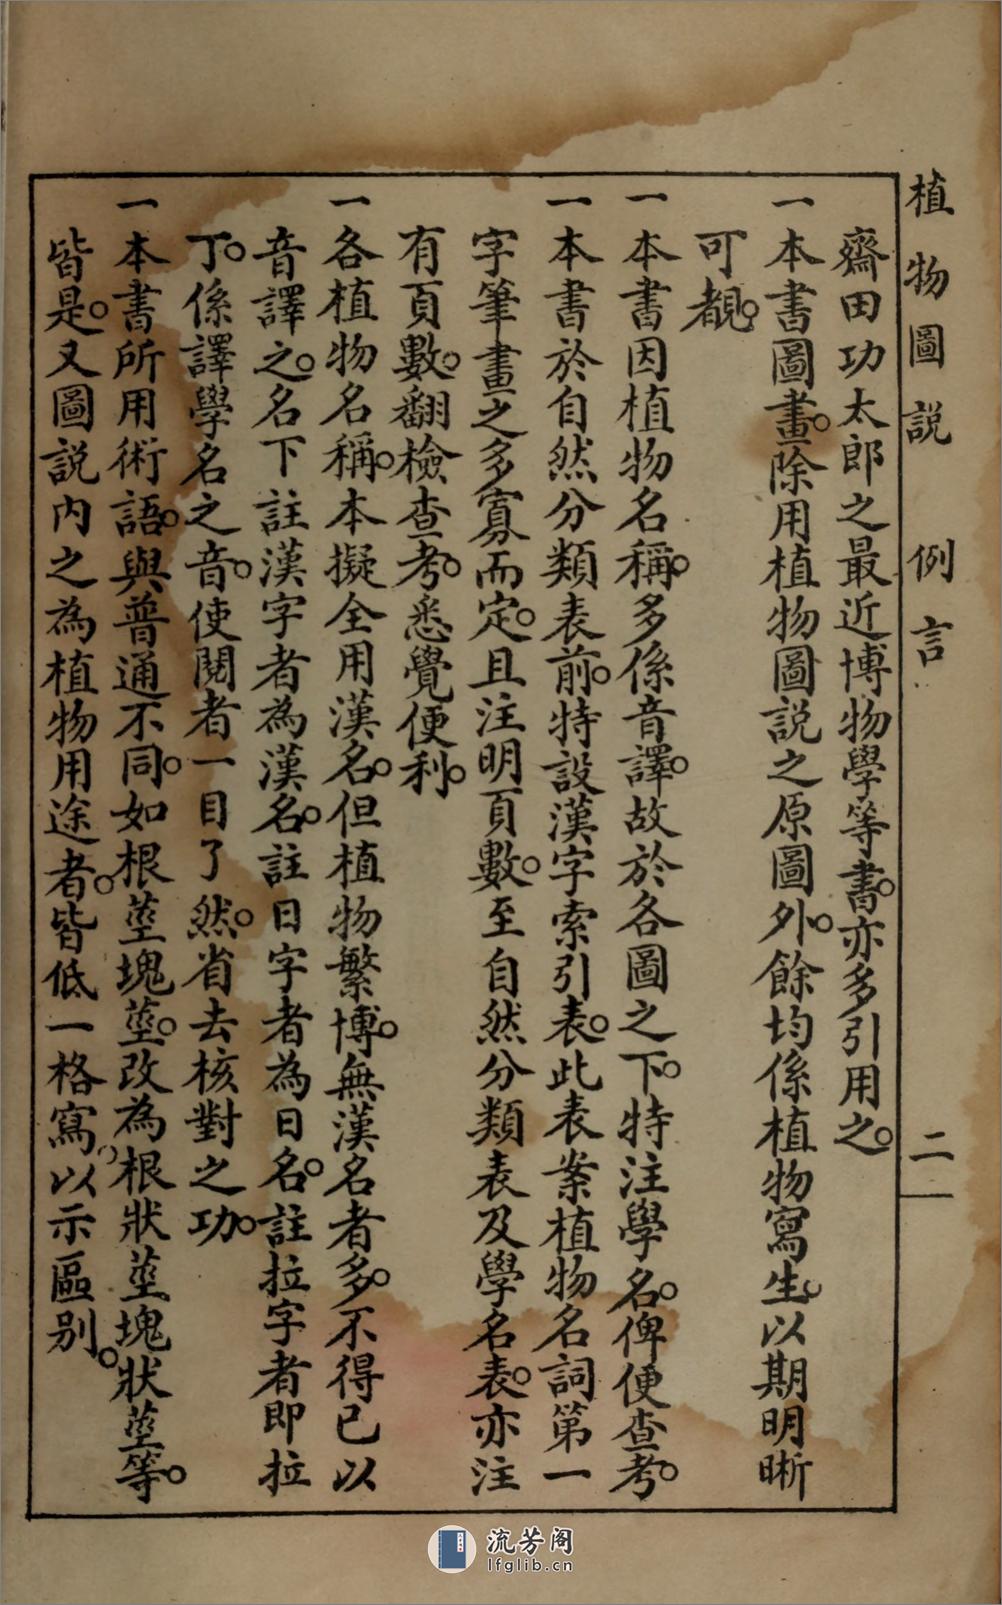 植物圖説　例言　二
齋田功太郎之最近博物學等書。亦多引用之。
一本書圖畫。除用植物圖説之原圖外。餘均係植物寫生。以期明晰
可覩。
一本書因植物名稱。多係音譯。故於各圖之下。特注學名。俾便查考。
一本書於自然分類表前。特設漢字索引表。此表案植物名詞第一
字筆畫之多寡而定。且注明頁數。至自然分類表及學名表。亦注
有頁數。翻檢查考。悉覺便利。
一各植物名稱。本擬全用漢名。但植物繁博。無漢名者多。不得已以
音譯之。名下註漢字者為漢名。註日字者為日名。註拉字者即拉
丁。係譯學名之音。使閱者一目了然。省去核對之功。
一本書所用術語。與普通不同。如根莖塊莖。改為根狀莖塊狀莖等。
皆是。又圖説内之為植物用途者。皆低一格寫。以示區别。
流芳阁
lfglib.cn